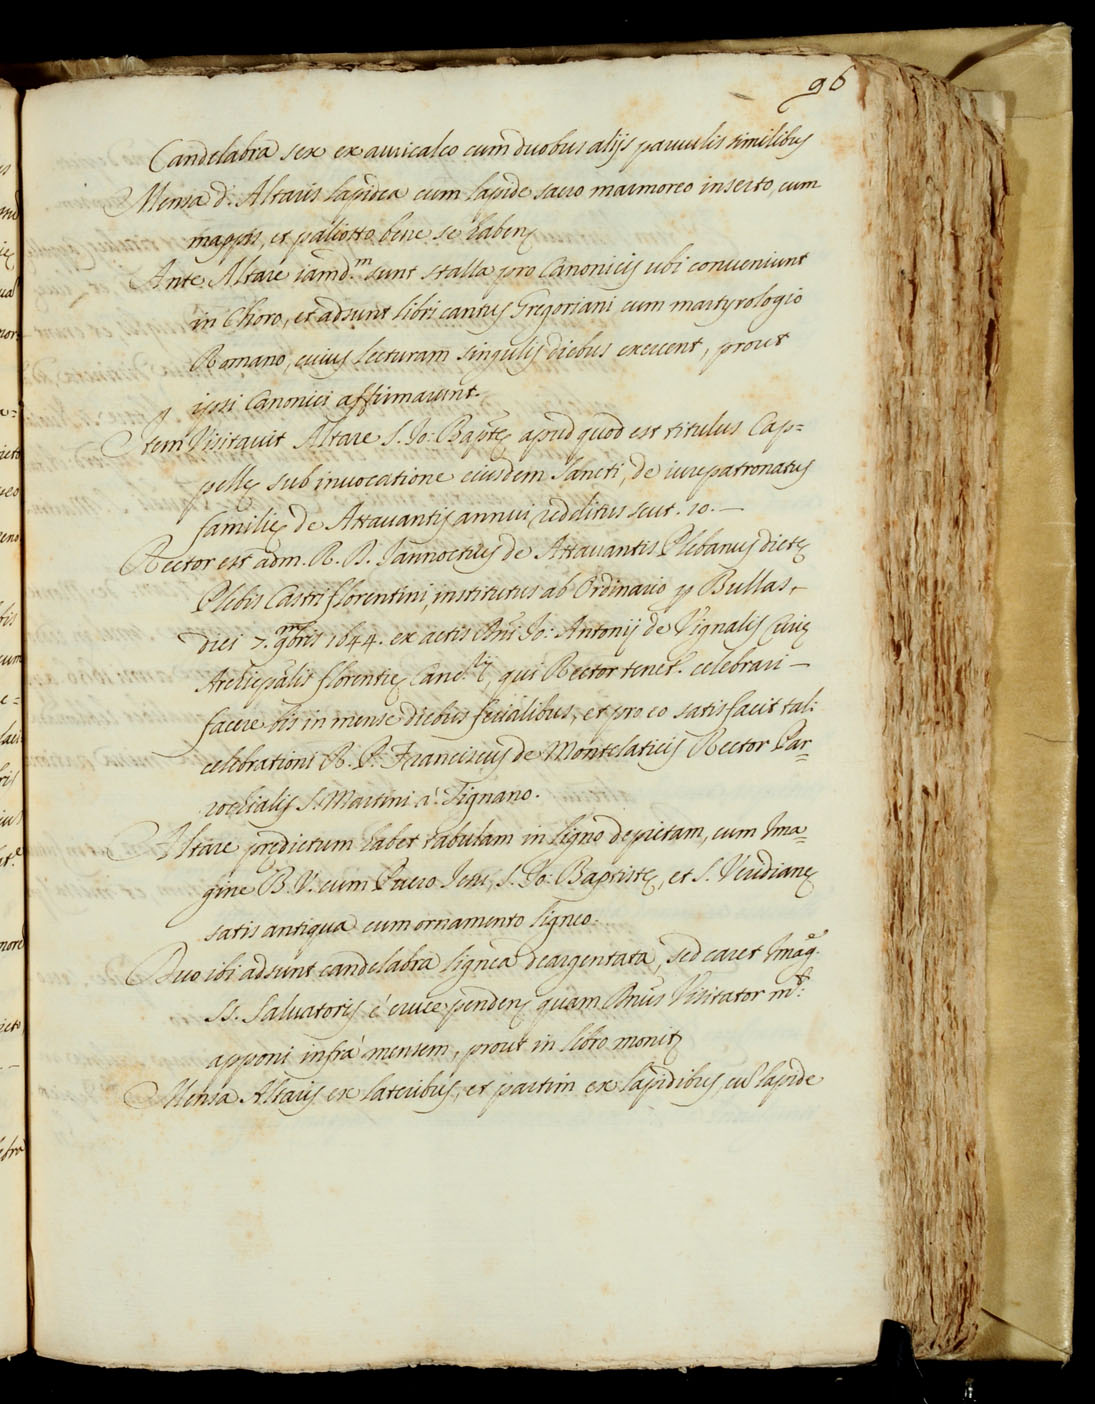 96
Candelabra sex ex auricalco cum duobus alijs paruulis similibus
Mensa d.ⁱ Altaris lapidea cum lapide sacro marmoreo inserto, cum
mappis, et paliotto bene se habenᵗ
Ante Altare iamd.ᵐ sunt stalla pro Canonicis ubi conueniunt
in Choro, et adsunt libri cantus Gregoriani cum martyrologio
Romano, cuius lecturam singulis diebus exercent, prout
ipsi Canonici affirmarunt.
Item Visitauit Altare S. Jo: Baptę apud quod est titulus Cap=
pellę sub inuocatione eiusdem Sancti, de iurepatronatus
familię de Attauantis annui redditus scut. 10. —
Rector est adm. R. D. Jannoctius de Attauantis Plebanus dictę
Plebis Castri florentini, institutus ab Ordinario p Bullas,
diei 7. 9bris 1644. ex actis Dni Jo: Antonij de Vignalis Curię
Archiepalis florentię Canc.rij, qui Rector tenet. celebrari —
facere bis in mense diebus ferialibus, et pro eo satisfacit tal:
celebrationi R. P. Franciscus de Montelaticis Rector Par=
rochialis S. Martini à Tignano.
Altare predictum habet tabulam in ligno depictam, cum Ima=
gine B. V. cum Puero Jesu, S. Jo: Baptistę, et S. Verdianę
satis antiqua cum ornamento ligneo.
Duo ibi adsunt candelabra lignea deargentata, sed caret Imag.ᵉ
SS. Saluatoris è cruce pendenᵗ quam Dnus Visitator m.ᵗ:
apponi infrà mensem, prout in libro monitᵗ
Mensa Altaris ex lateribus, et partim ex lapidibus, cū lapide